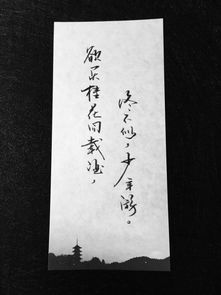 欲买桂花同载酒，
终不似，少年游。